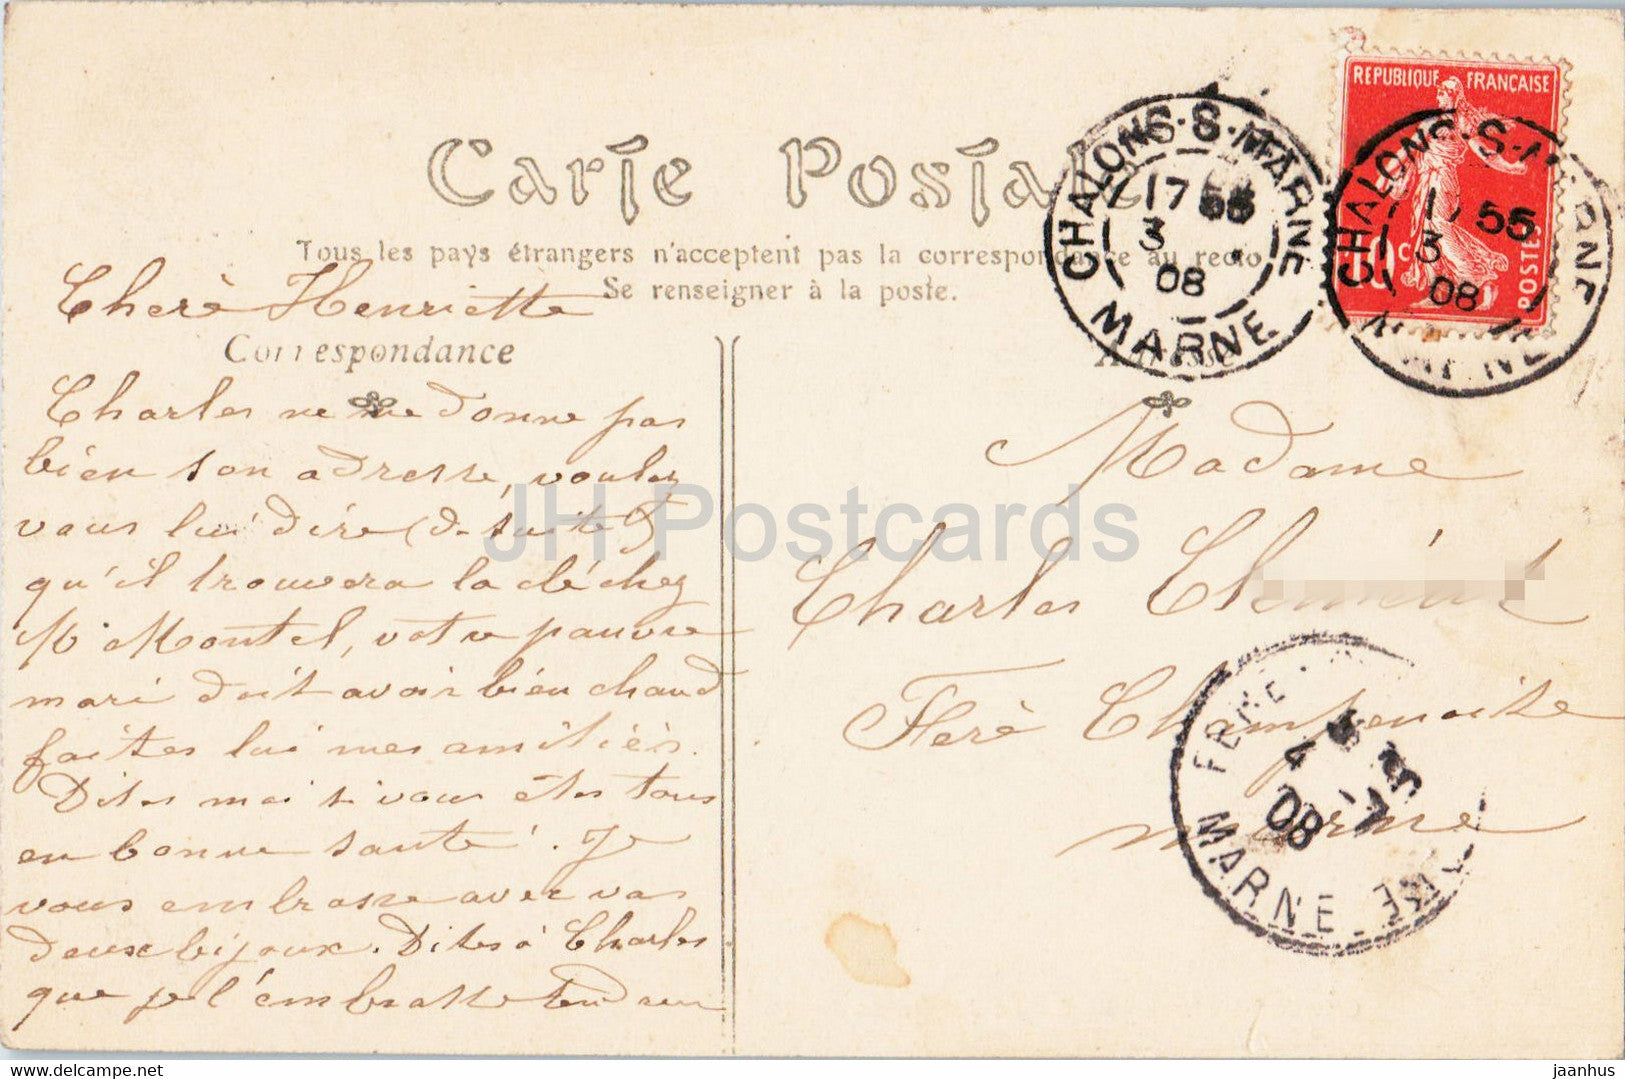 Carte Postale
Tous les pays étrangers n'acceptent pas la correspondance au recto
Se renseigner à la poste.
Cherè Henriette
Correspondance
Charles ne me donne pas
bien son adresse, voulez
vous lui dire (de suite)
qu'il trouvera la clé chez
Mr Montel, votre pauvre
mari doit avoir bien chaud
faites lui mes amitiès.
Dites moi si vous êtes tous
en bonne santé. Je
vous embrasse avec vos
deux bijoux. Dites à Charles
que je l'embrasse
Madame
Charles
Fère Champenoise
marne
REPUBLIQUE FRANÇAISE
POSTES
10c
CHALONS-S-MARNE
17 55
3
08
MARNE
CHALONS-S-MARNE
17 55
3
08
MARNE
FERE
4
08
MARNE
JH Postcards
hip.net
jaanhus